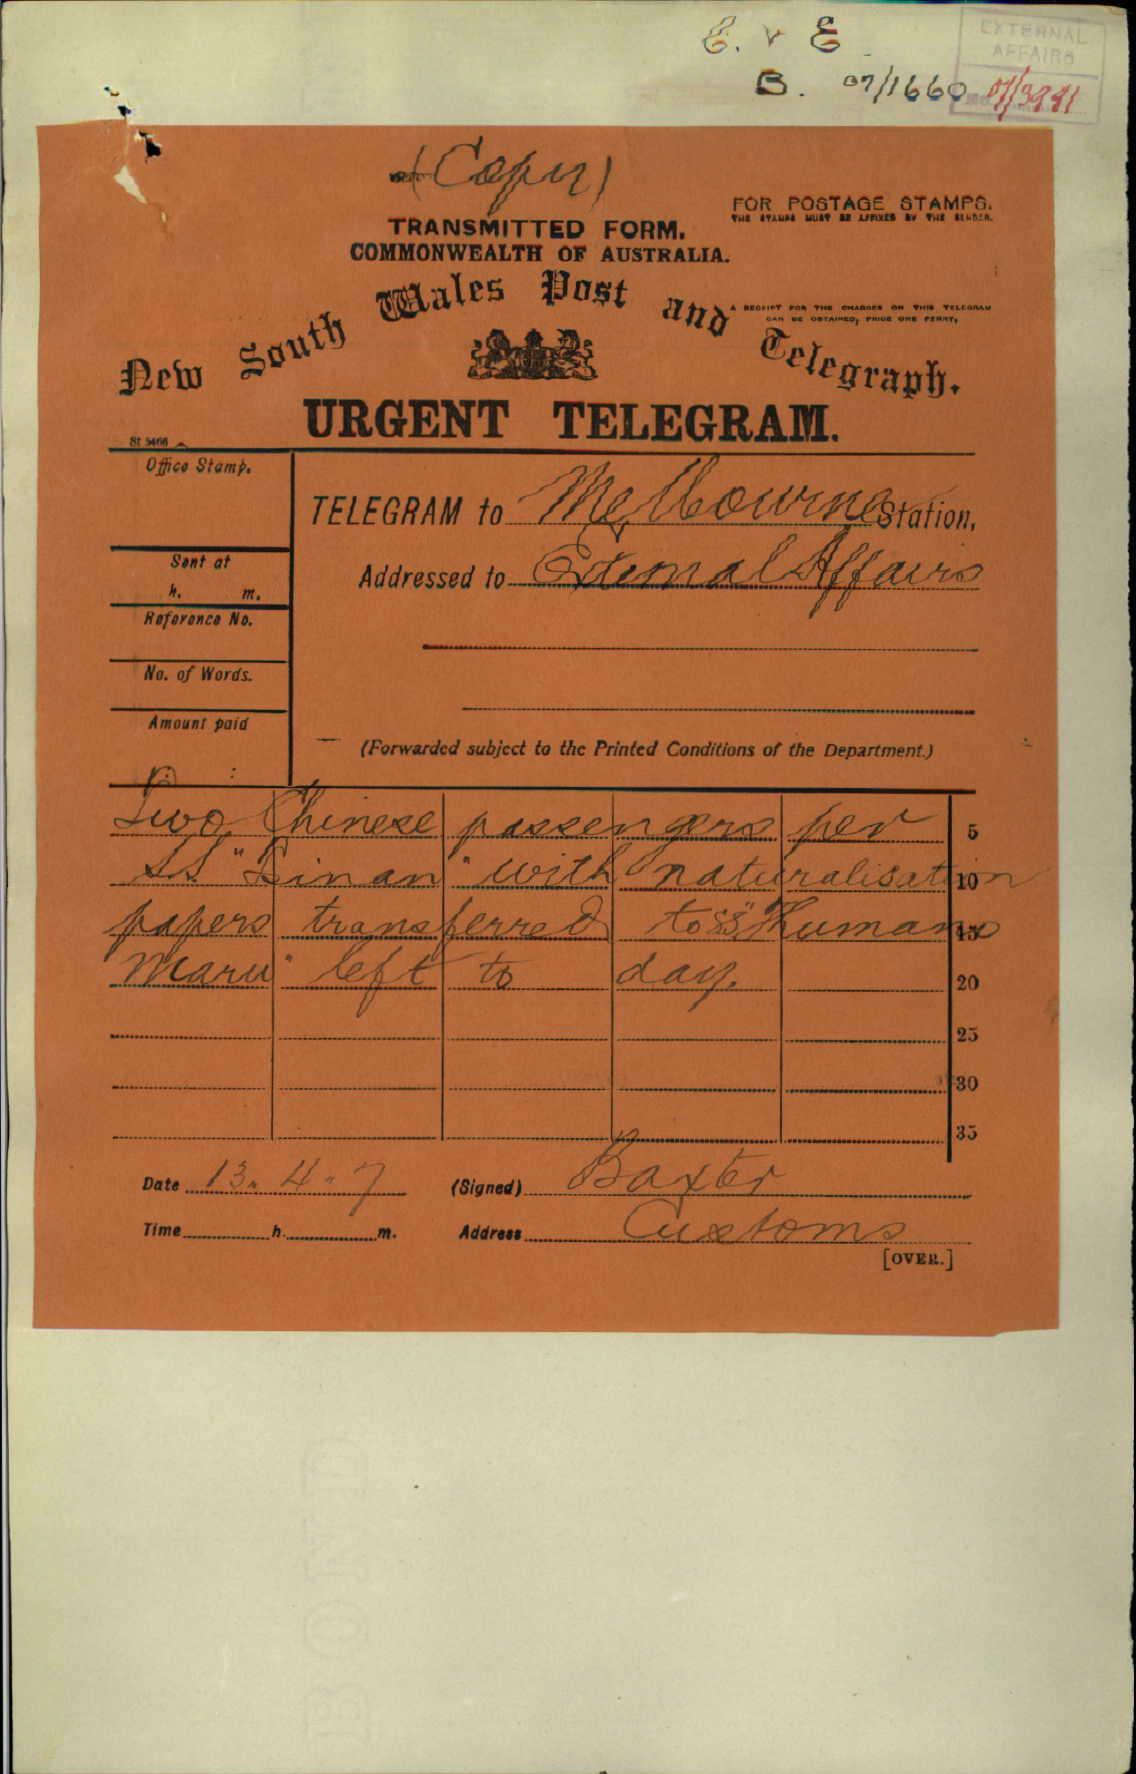 E. & E.
EXTERNAL
AFFAIRS
B. 07/1660
No. 07/3941
(Copy)
FOR POSTAGE STAMPS.
THE STAMPS MUST BE AFFIXED BY THE SENDER.
TRANSMITTED FORM.
COMMONWEALTH OF AUSTRALIA.
A RECEIPT FOR THE CHARGES ON THIS TELEGRAM
CAN BE OBTAINED, PRICE ONE PENNY,
New South Wales Post and Telegraph.
URGENT TELEGRAM.
St 5466
Office Stamp.
TELEGRAM to Melbourne Station,
Sent at
h. m.
Addressed to External Affairs
Reference No.
No. of Words.
Amount paid
(Forwarded subject to the Printed Conditions of the Department.)
Two Chinese passengers per 5
SS "Linan" with naturalisation 10
papers transferred to SS "Kumano 15
Maru" left to day. 20
25
30
35
Date 13. 4. 7 (Signed) Baxter
Time h. m. Address Customs
[OVER.]
BOND